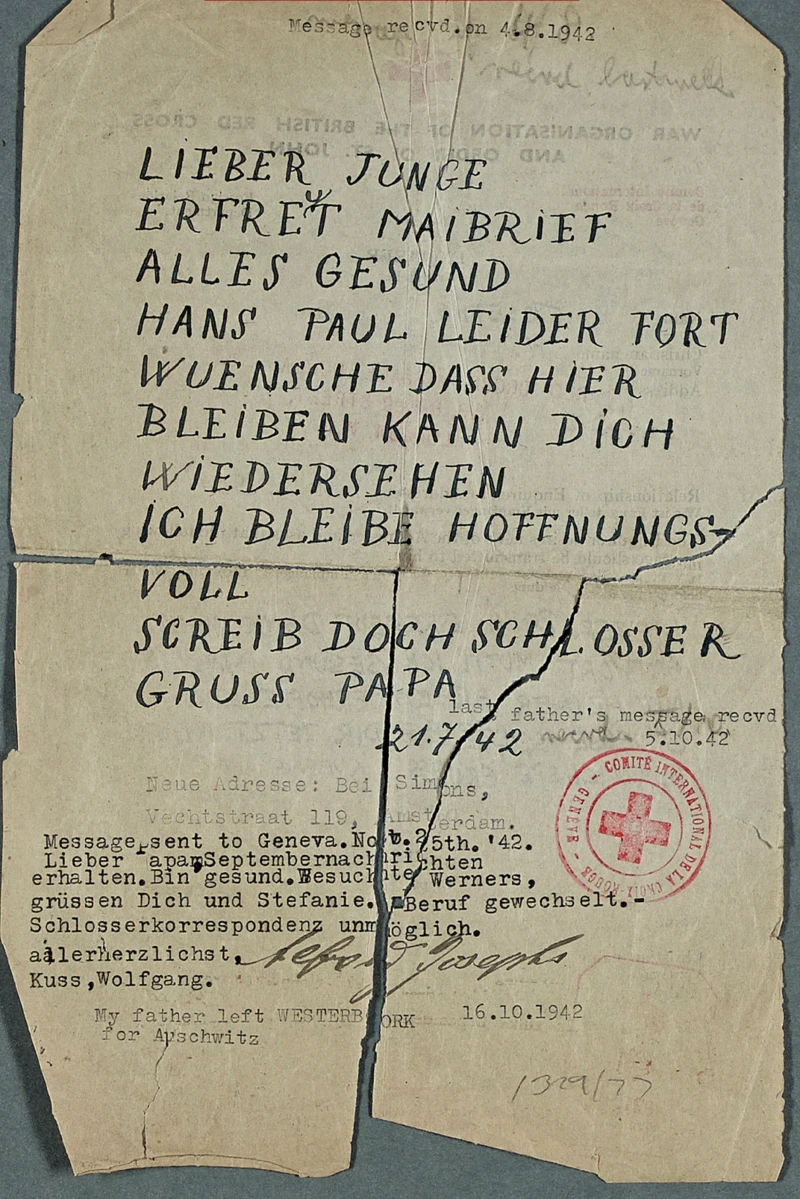 Message recvd.on 4.8.1942
recvd
WAR ORGANISATION OF THE BRITISH RED CROSS
AND ORDER OF ST. JOHN
LIEBER JUNGE
ERFREUT MAIBRIEF
ALLES GESUND
HANS PAUL LEIDER FORT
WUENSCHE DASS HIER
BLEIBEN KANN DICH
WIEDERSEHEN
ICH BLEIBE HOFFNUNGS-
VOLL
SCREIB DOCH SCHLOSSER
GRUSS PAPA
last father's message recvd
21.7/42 recvd. 5.10.42
COMITÉ INTERNATIONAL DE LA CROIX-ROUGE - GENÈVE -
Neue Adresse: Bei Simons,
Vechtstraat 119, Amsterdam.
Message sent to Geneva.Nov.25th.'42.
Lieber apa,Septembernachrichten
erhalten.Bin gesund.Besuchte Werners,
grüssen Dich und Stefanie. Beruf gewechselt.-
Schlosserkorrespondenz unmöglich.
allerherzlichst,
Kuss,Wolfgang.
My father left WESTERBORK 16.10.1942
for Auschwitz
1329/77